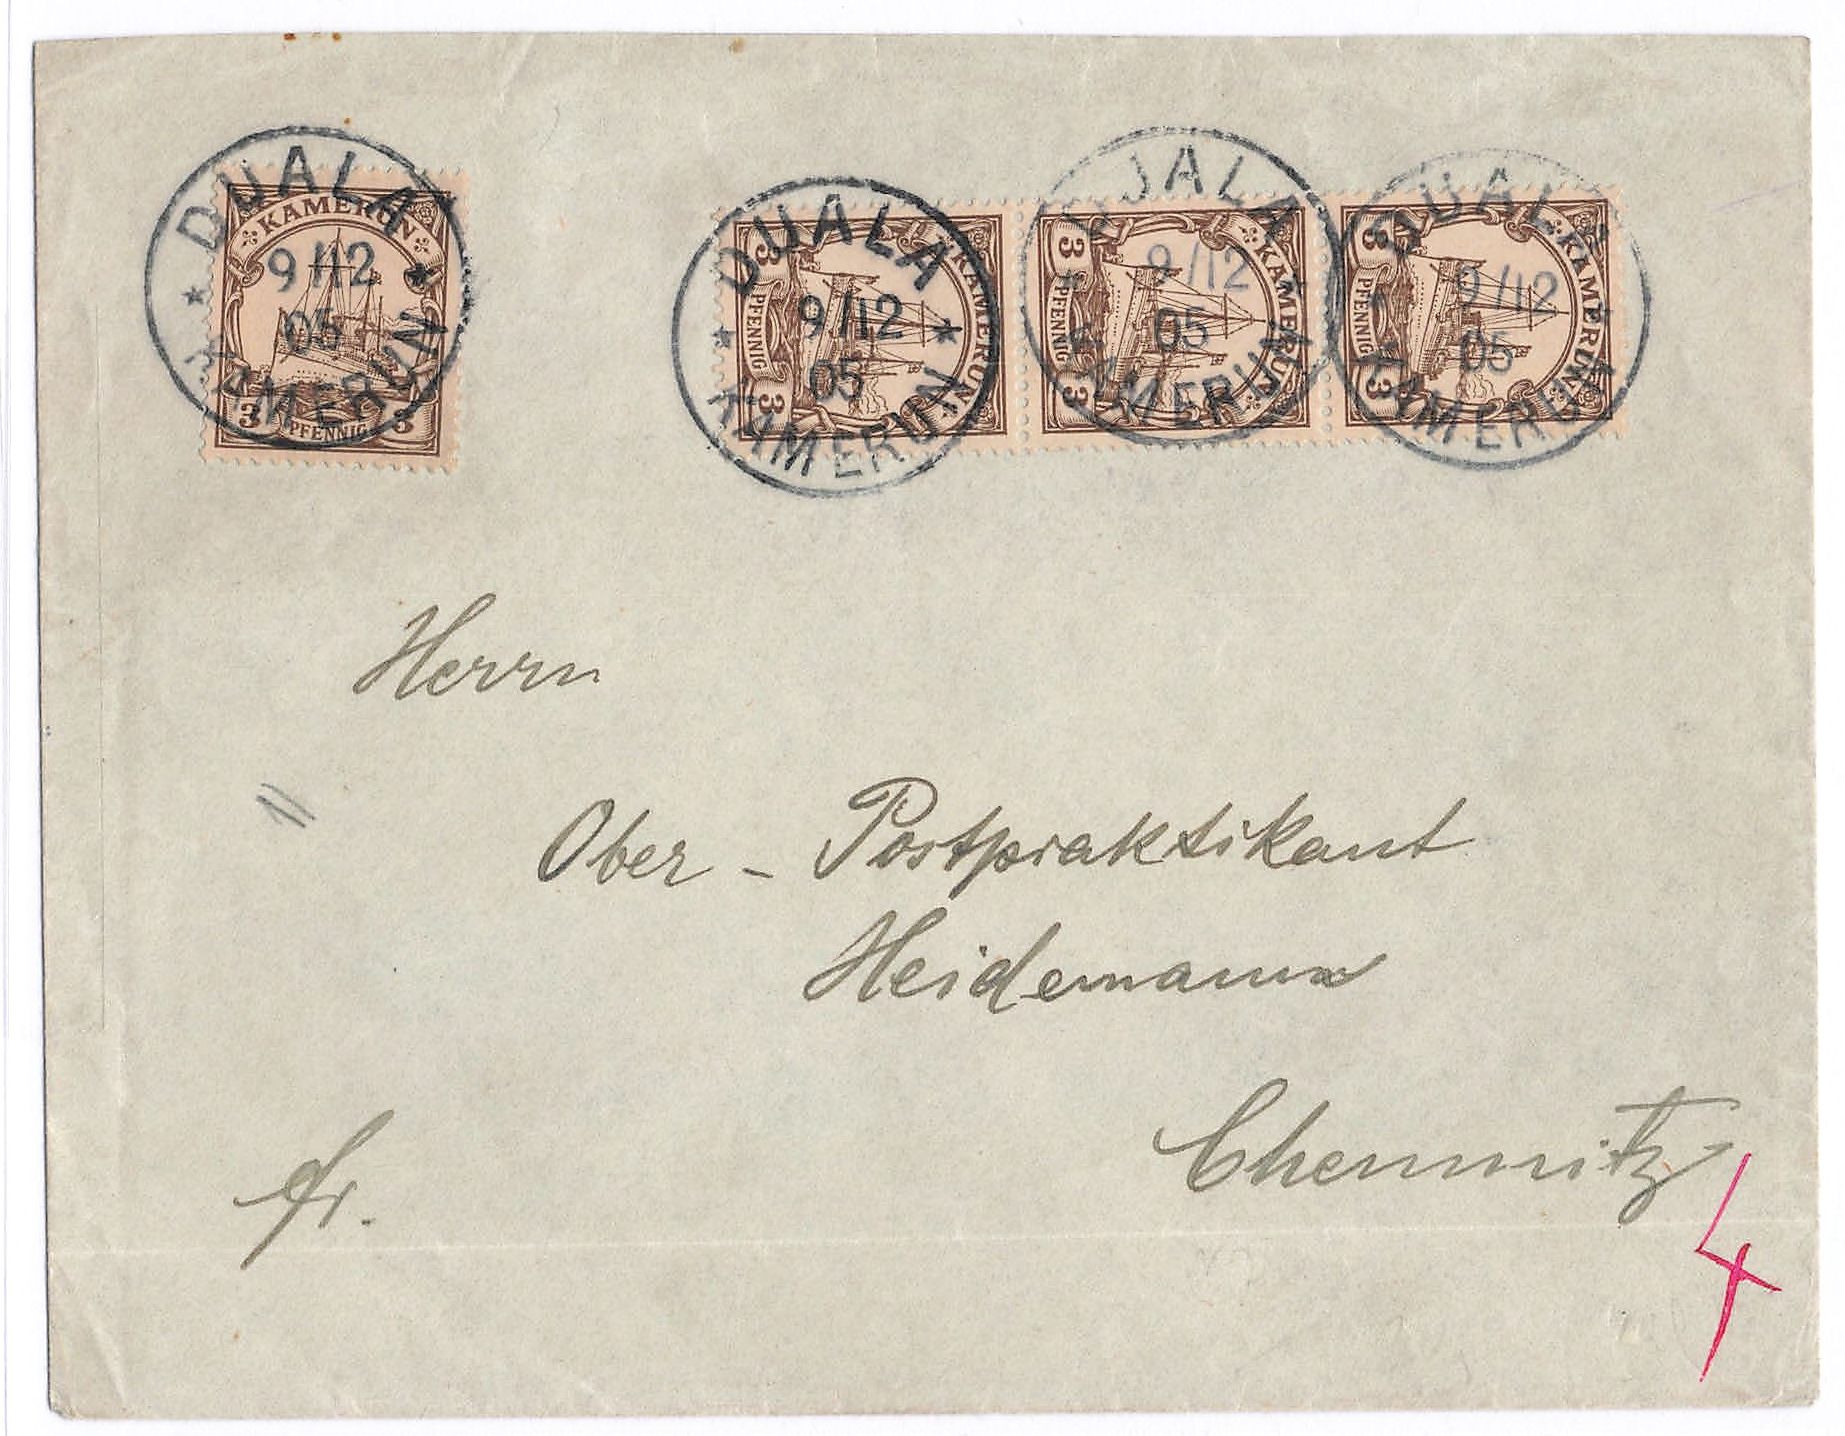 DUALA
9/12
05
KAMERUN
KAMERUN
3 PFENNIG 3
DUALA
9/12
05
KAMERUN
KAMERUN
3 PFENNIG 3
DUALA
9/12
05
KAMERUN
KAMERUN
3 PFENNIG 3
DUALA
9/12
05
KAMERUN
KAMERUN
3 PFENNIG 3
Herrn
Ober - Postpraktikant
Heidemann
Chemnitz
fr.
4